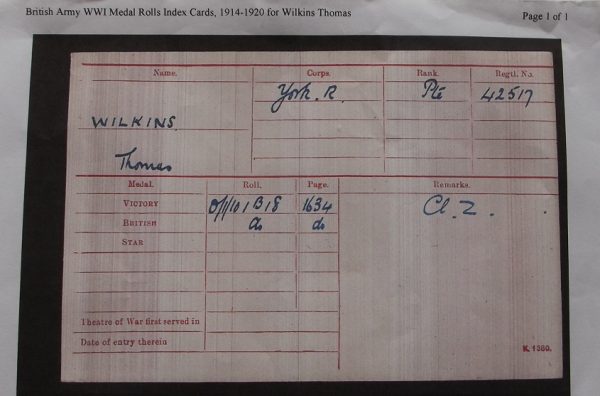 British Army WWI Medal Rolls Index Cards, 1914-1920 for Wilkins Thomas Page 1 of 1
Name. Corps. Rank. Regtl. No.
York. R. Pte 42517
WILKINS
Thomas
Medal. Roll. Page. Remarks.
VICTORY 1634 Cl. Z.
BRITISH do do
STAR
Theatre of War first served in
Date of entry therein
K. 1380.